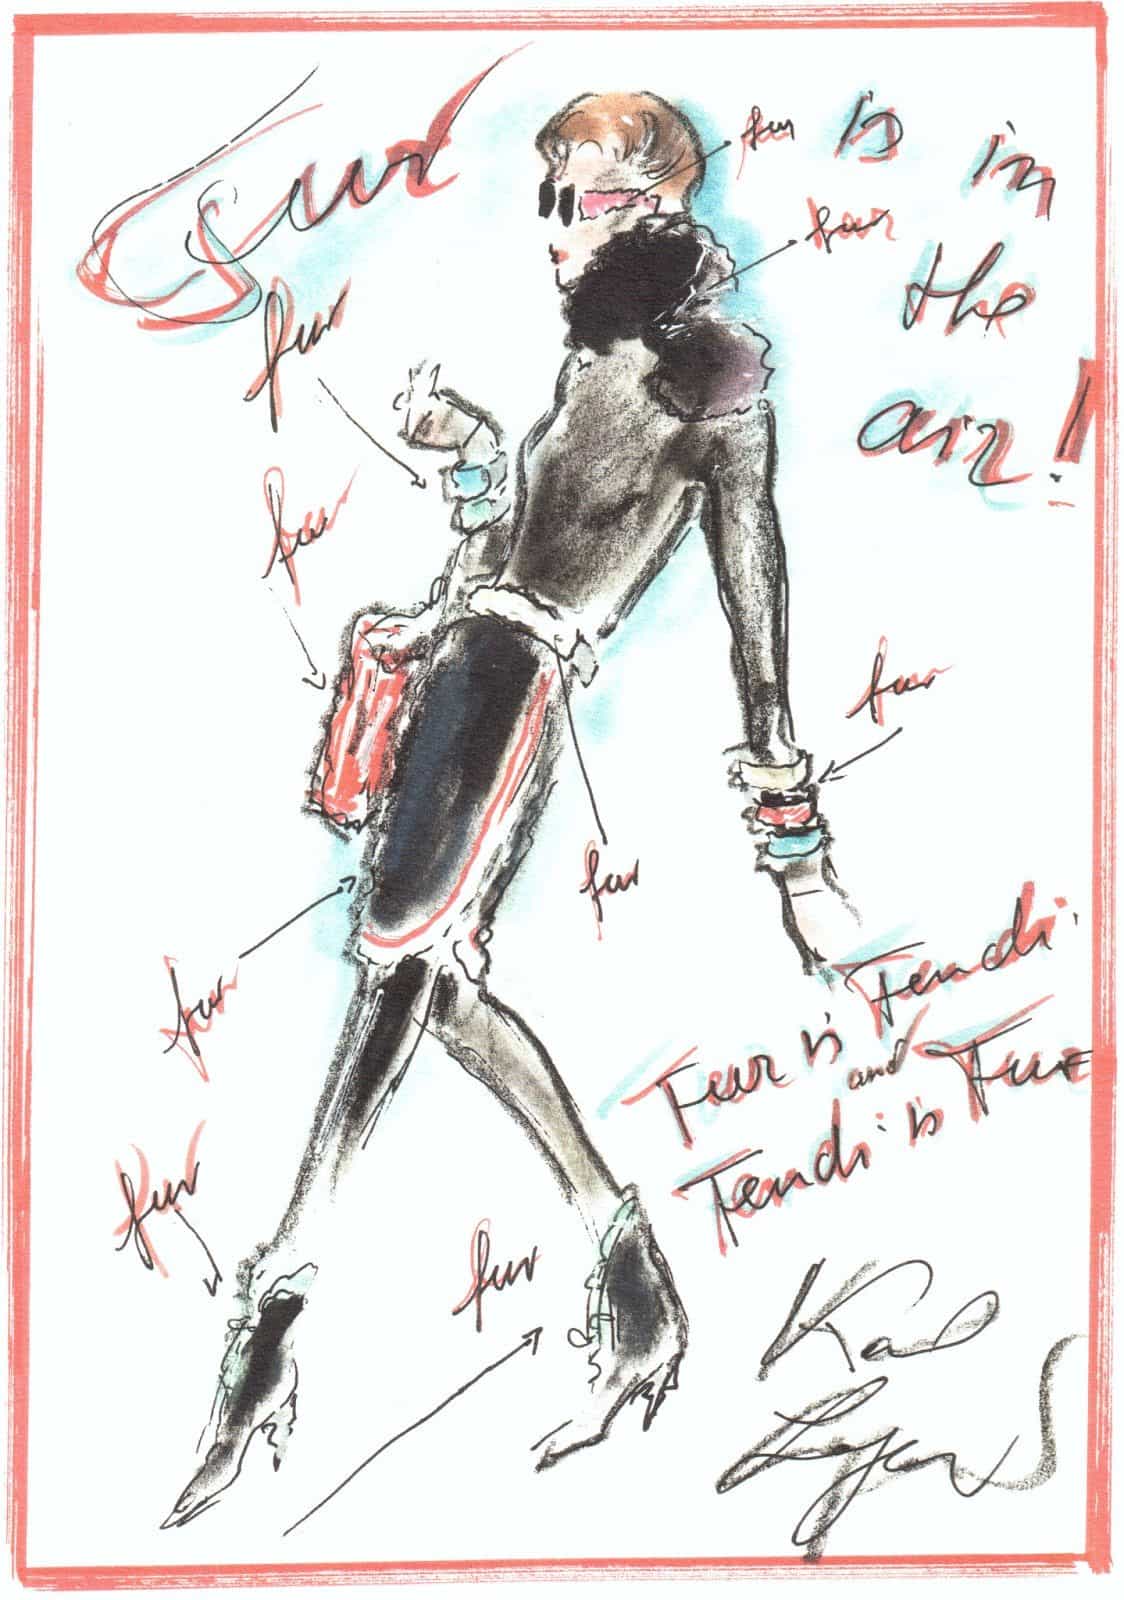 Fur
fur
is in
the
air!
fur
fur
fur
fur
fur
fur
fur
fur
Fur is Fendi
and
Fendi is Fur
Karl
Lagerfeld